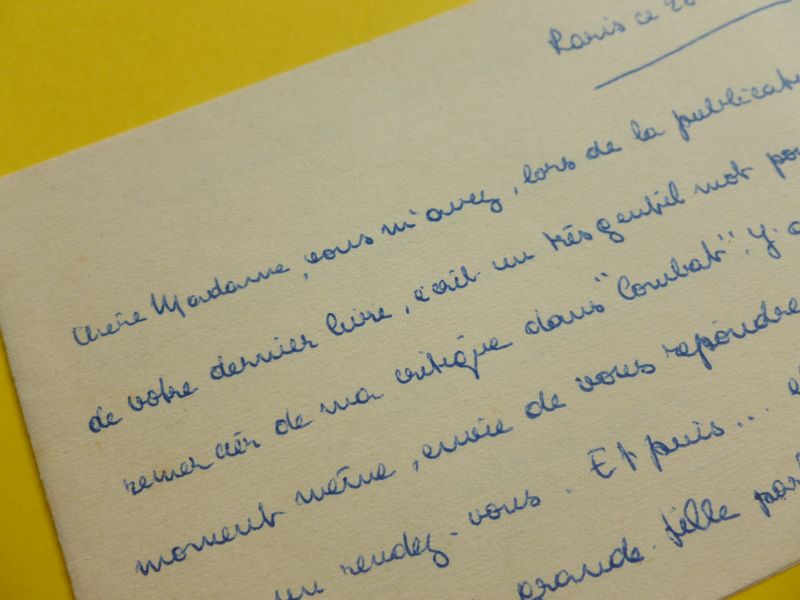 Paris ce 20
Chère Madame, vous m'avez, lors de la publicati
de votre dernier livre, écrit un très gentil mot po
remercier de ma critique dans "Combat". J'a
moment même, envie de vous repondre
un rendez-vous. Et puis...
grande fille par